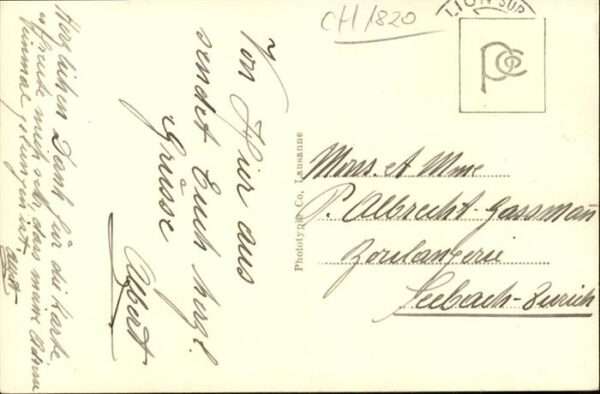 CH/820
LION SUR
Von Hier aus
sendet Euch herzl.
Grüsse
Albert
Herzlichen Dank für die Karte
mich sehr, dass
gelungen ist
Phototypie Co. Lausanne
Mons. et Mme
P. Albrecht-Gassmann
Boulangerie
Seebach-Zurich